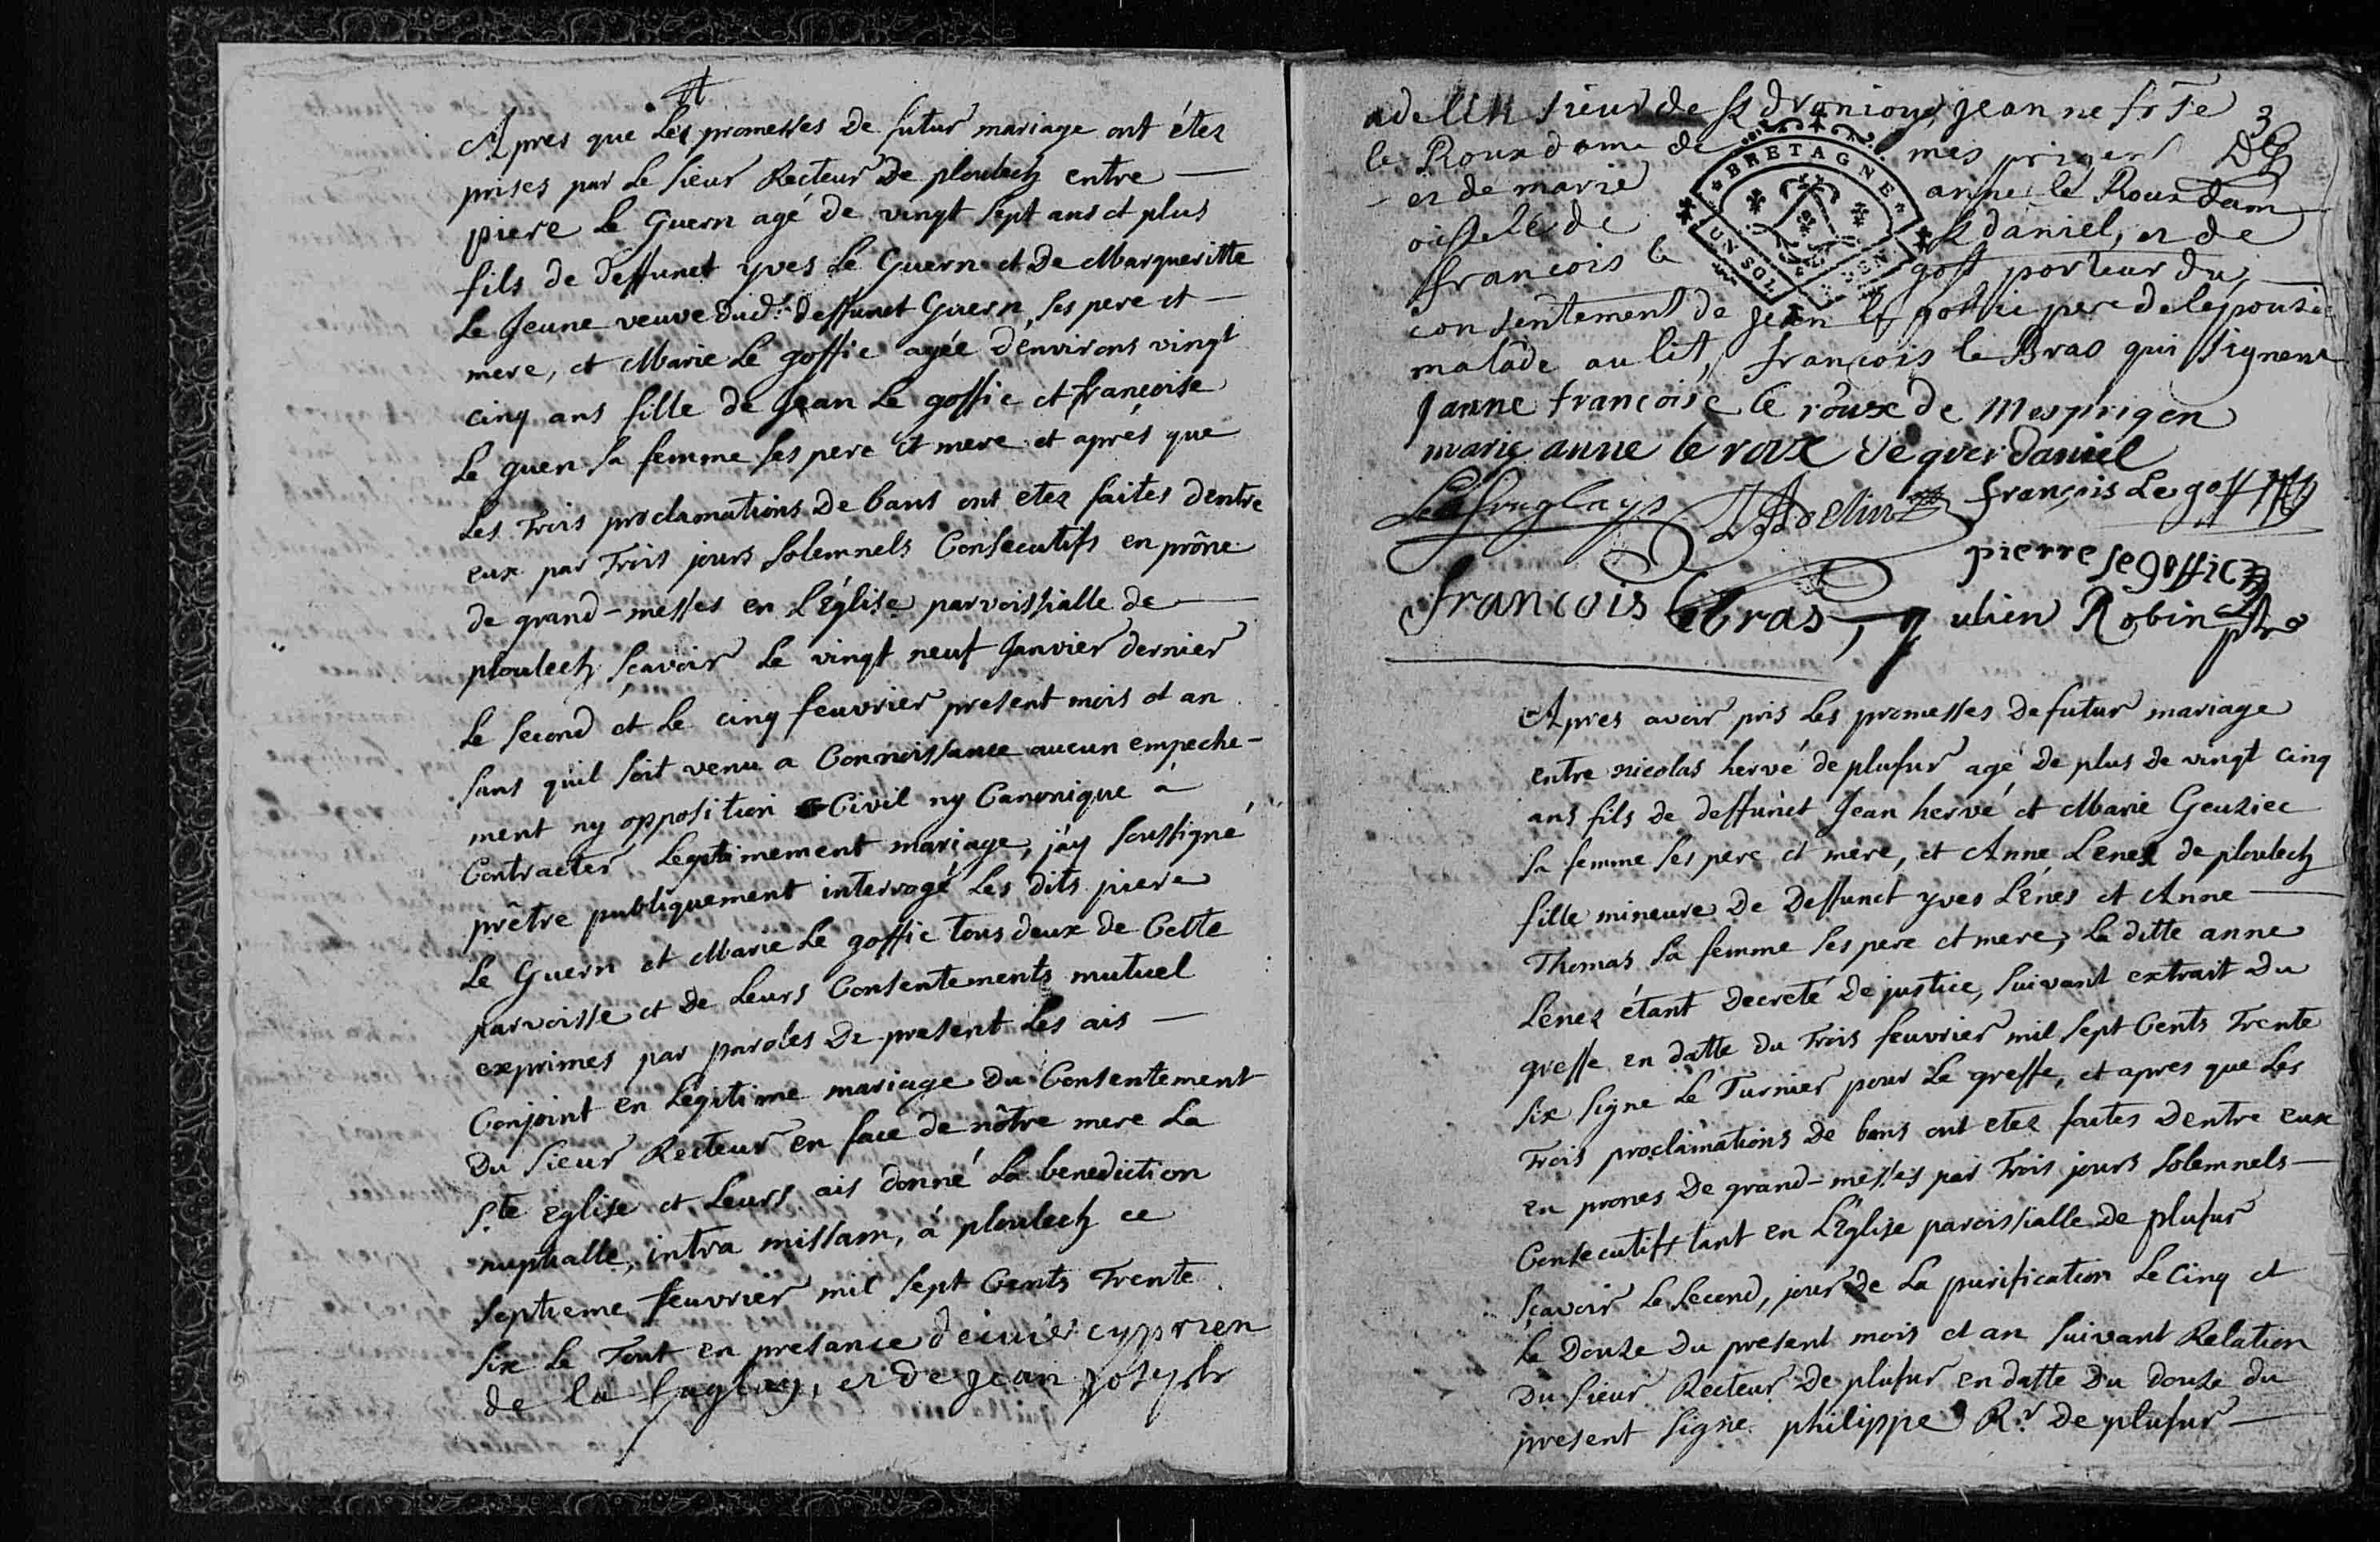 Apres que les promesses de futur mariage ont étez
prises par le sieur Recteur de ploulech entre
piere le Guern agé de vingt sept ans et plus
fils de deffunct yves le Guern et de Margueritte
le Jeune veuve dud.t deffunct Guern, ses pere et
mere, et Marie le goffic agée d'environs vingt
cinq ans fille de Jean le goffic et françoise
le guen sa femme ses pere et mere et aprés que
les trois proclamations de bans ont etez faites dentre
eux par trois jours solemnels Consecutifs en prône
de grand-messes en L'église parroissialle de
ploulech sçavoir le vingt neuf Janvier dernier
le second et le cinq feuvrier present mois et an
sans qu'il soit venu a Connoissance aucun empeche-
ment ny opposition Civil ny Canonique à
Contracter legitimement mariage, j'ay soussigné
prêtre publiquement interrogé les dits piere
le Guern et Marie le goffic tous deux de Cette
parroisse et de leurs Consentements mutuel
exprimes par paroles de present les ais
Conjoint en legitime mariage du Consentement
du sieur Recteur en face de nôtre mere la
s.te eglise et leurs ais donné la benediction
nuptialle, intra missam, à ploulech ce
septieme feuvrier mil sept Cents trente
six le tout en presance de cyprien
de la fuglay, et de jean joseph
3
adelin sieur de jeanne
le Roux dame de mes prigent
et de marie anne le Roux dam
oiselle de daniel, et de
francois le goff porteur du
consentement de jean le goffic pere de lepousee
malade au lit, françois le Bras qui signent
BRETAGNE
UN SOL DEN
janne françoise le roux de Mesprigen
marie anne le roux de querdaniel
Adelin françois le goff
pierre le goffic
francois le bras, julien Robin ptre
Apres avoir pris les promesses de futur mariage
entre nicolas hervé de plufur agé de plus de vingt cinq
ans fils de deffunct Jean hervé et Marie Geuziec
sa femme ses pere et mere, et Anne Lenez de ploulech
fille mineure de deffunct yves Lénes et Anne
Thomas sa femme ses pere et mere, la ditte anne
Lénez étant decreté de justice, suivant extrait du
greffe en datte du trois feuvrier mil sept Cents trente
six signe le Turnier pour le greffe, et apres que les
trois proclamations de bans ont etez faites dentre eux
en prones de grand-messes par trois jours solemnels
Consecutifs tant en L'église paroissialle de plufur
sçavoir le second, jour de la purification le Cinq et
le douze du present mois et an suivant Relation
du sieur Recteur de plufur en datte du douze du
present signe philippe R.r de plufur